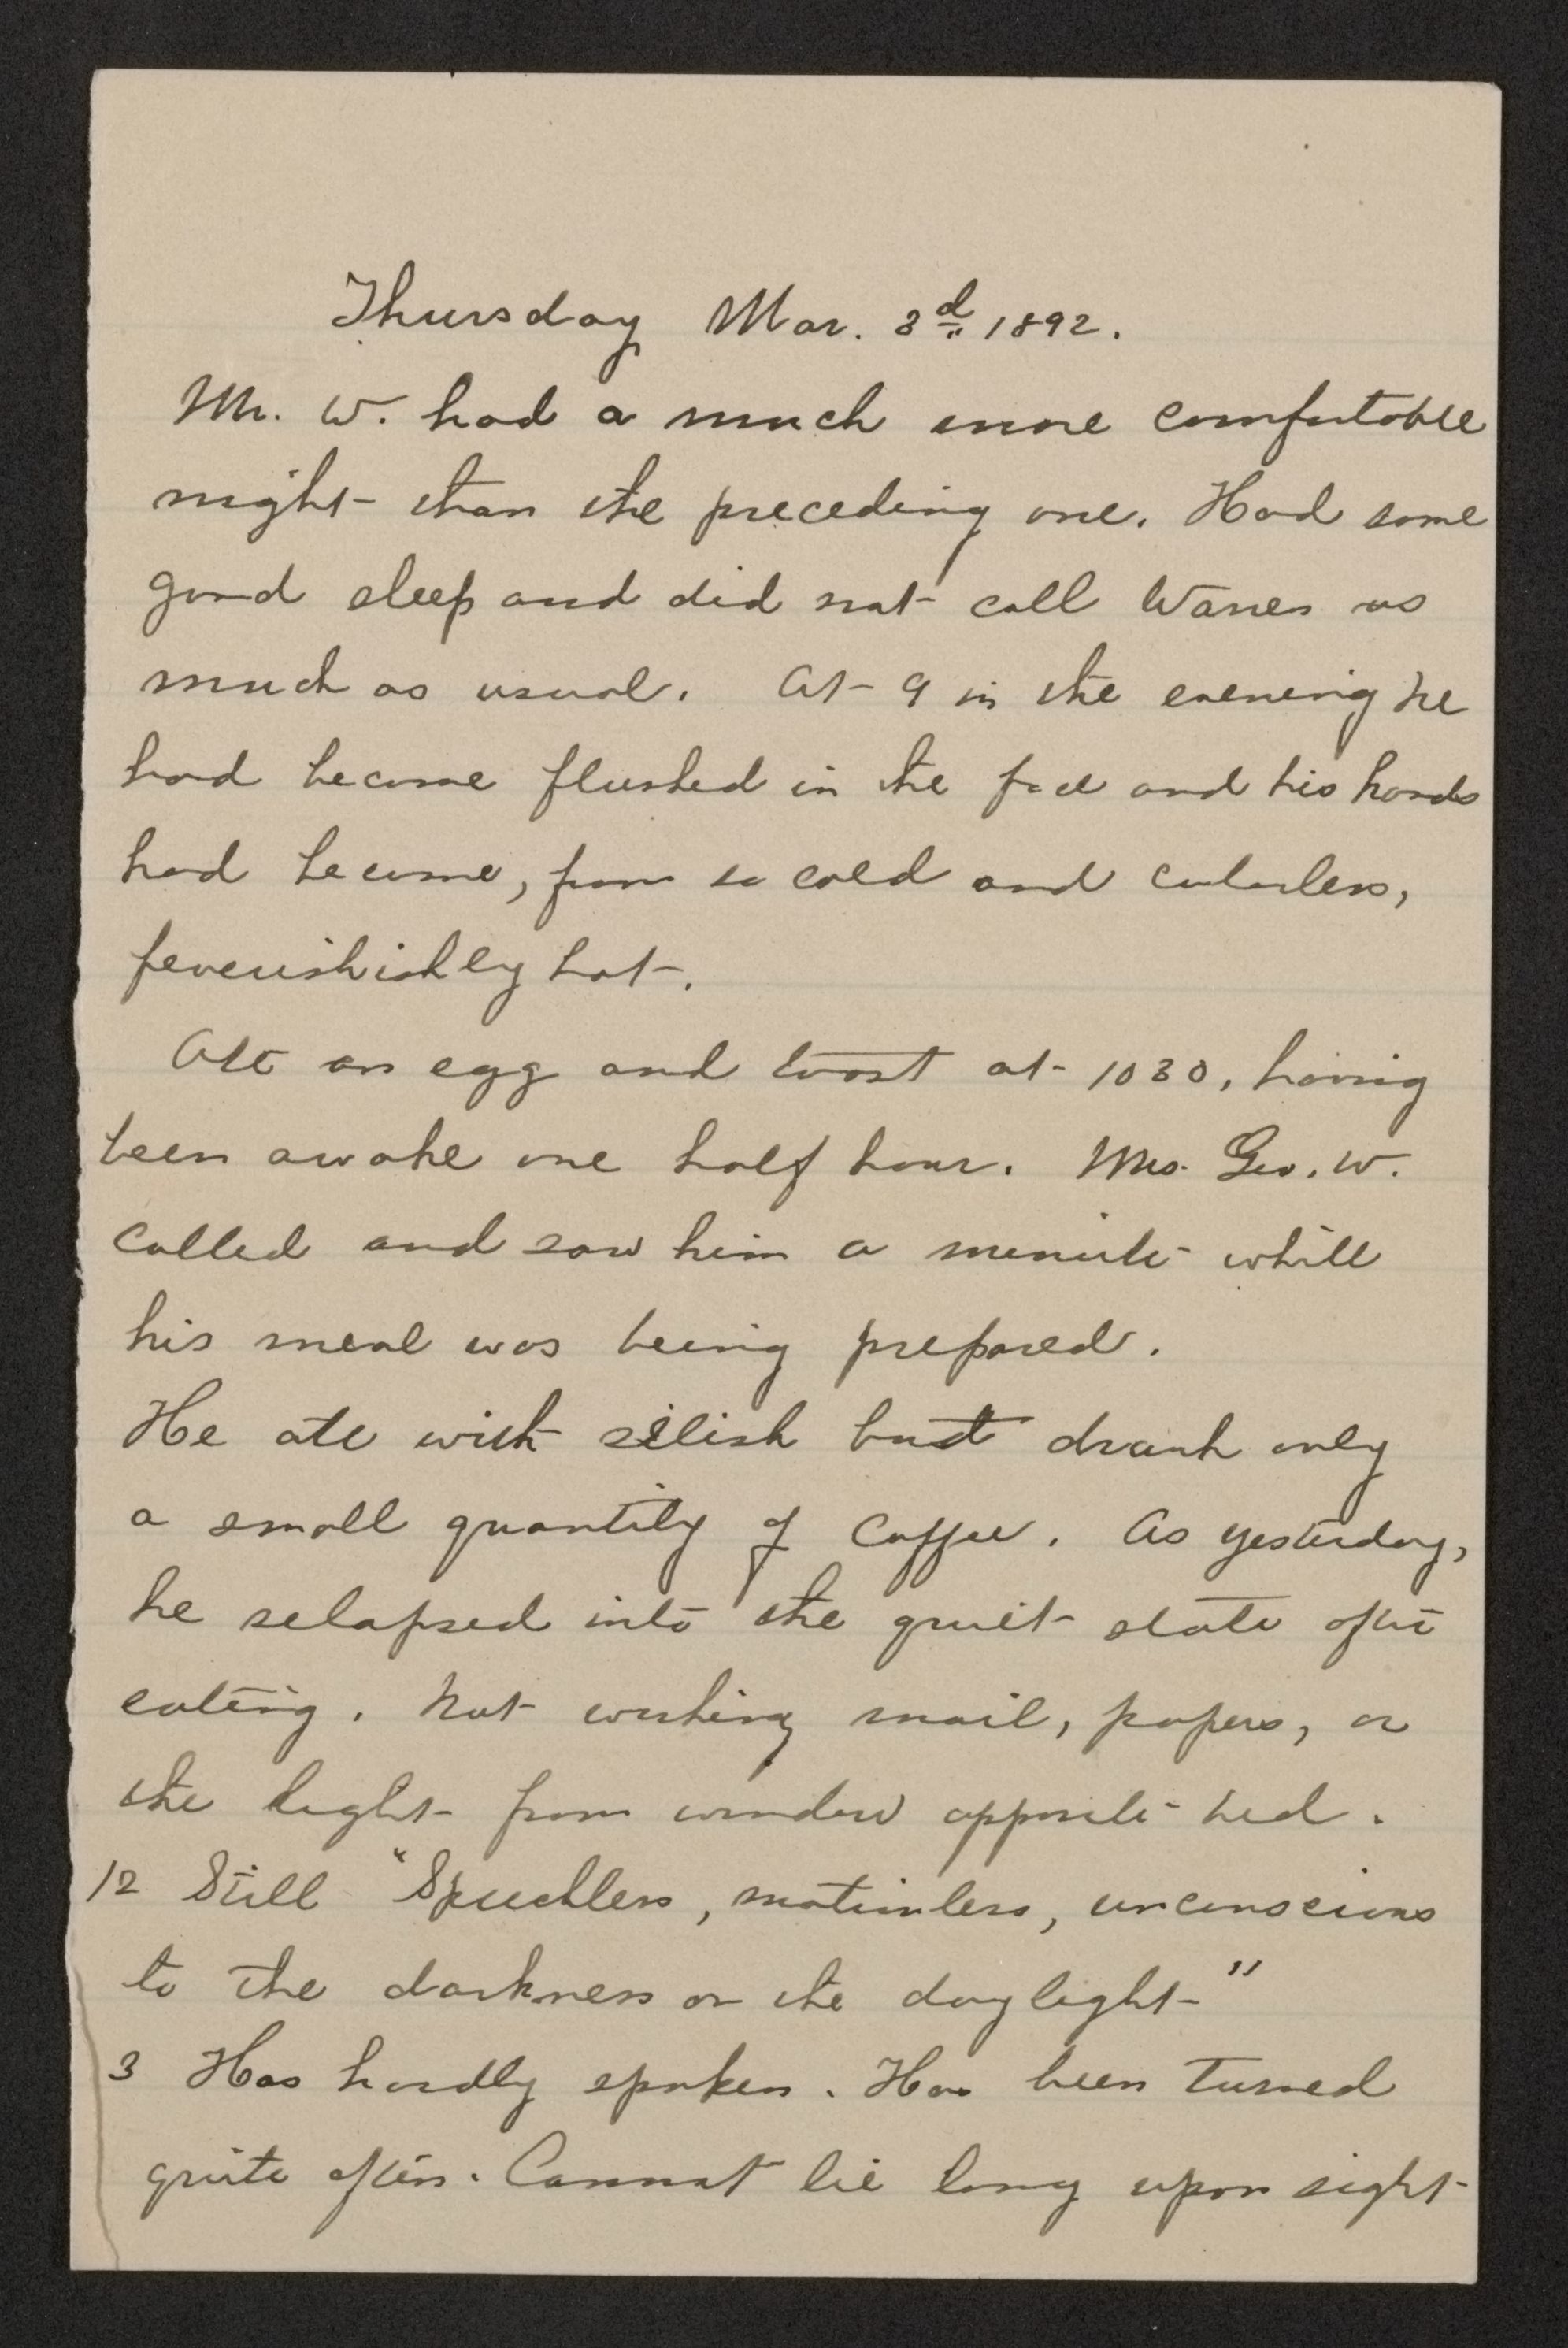 Thursday Mar. 3d 1892.
Mr. W. had a much more comfortable
night than the preceding one. Had some
good sleep and did not call Warren as
much as usual. At 9 in the evening he
had become flushed in the face and his hands
had become, from so cold and colorless,
feverishishly hot.
Ate an egg and toast at 1030, having
been awake one half hour. Mrs. Geo. W.
called and saw him a minute while
his meal was being prepared.
He ate with relish but drank only
a small quantity of coffee. As yesterday,
he relapsed into the quiet state after
eating. Not wishing mail, papers, or
the light from window opposite bed.
12 Still "Speechless, motionless, unconscious
to the darkness or the daylight"
3 Has hardly spoken. Has been turned
quite often. Cannot lie long upon right